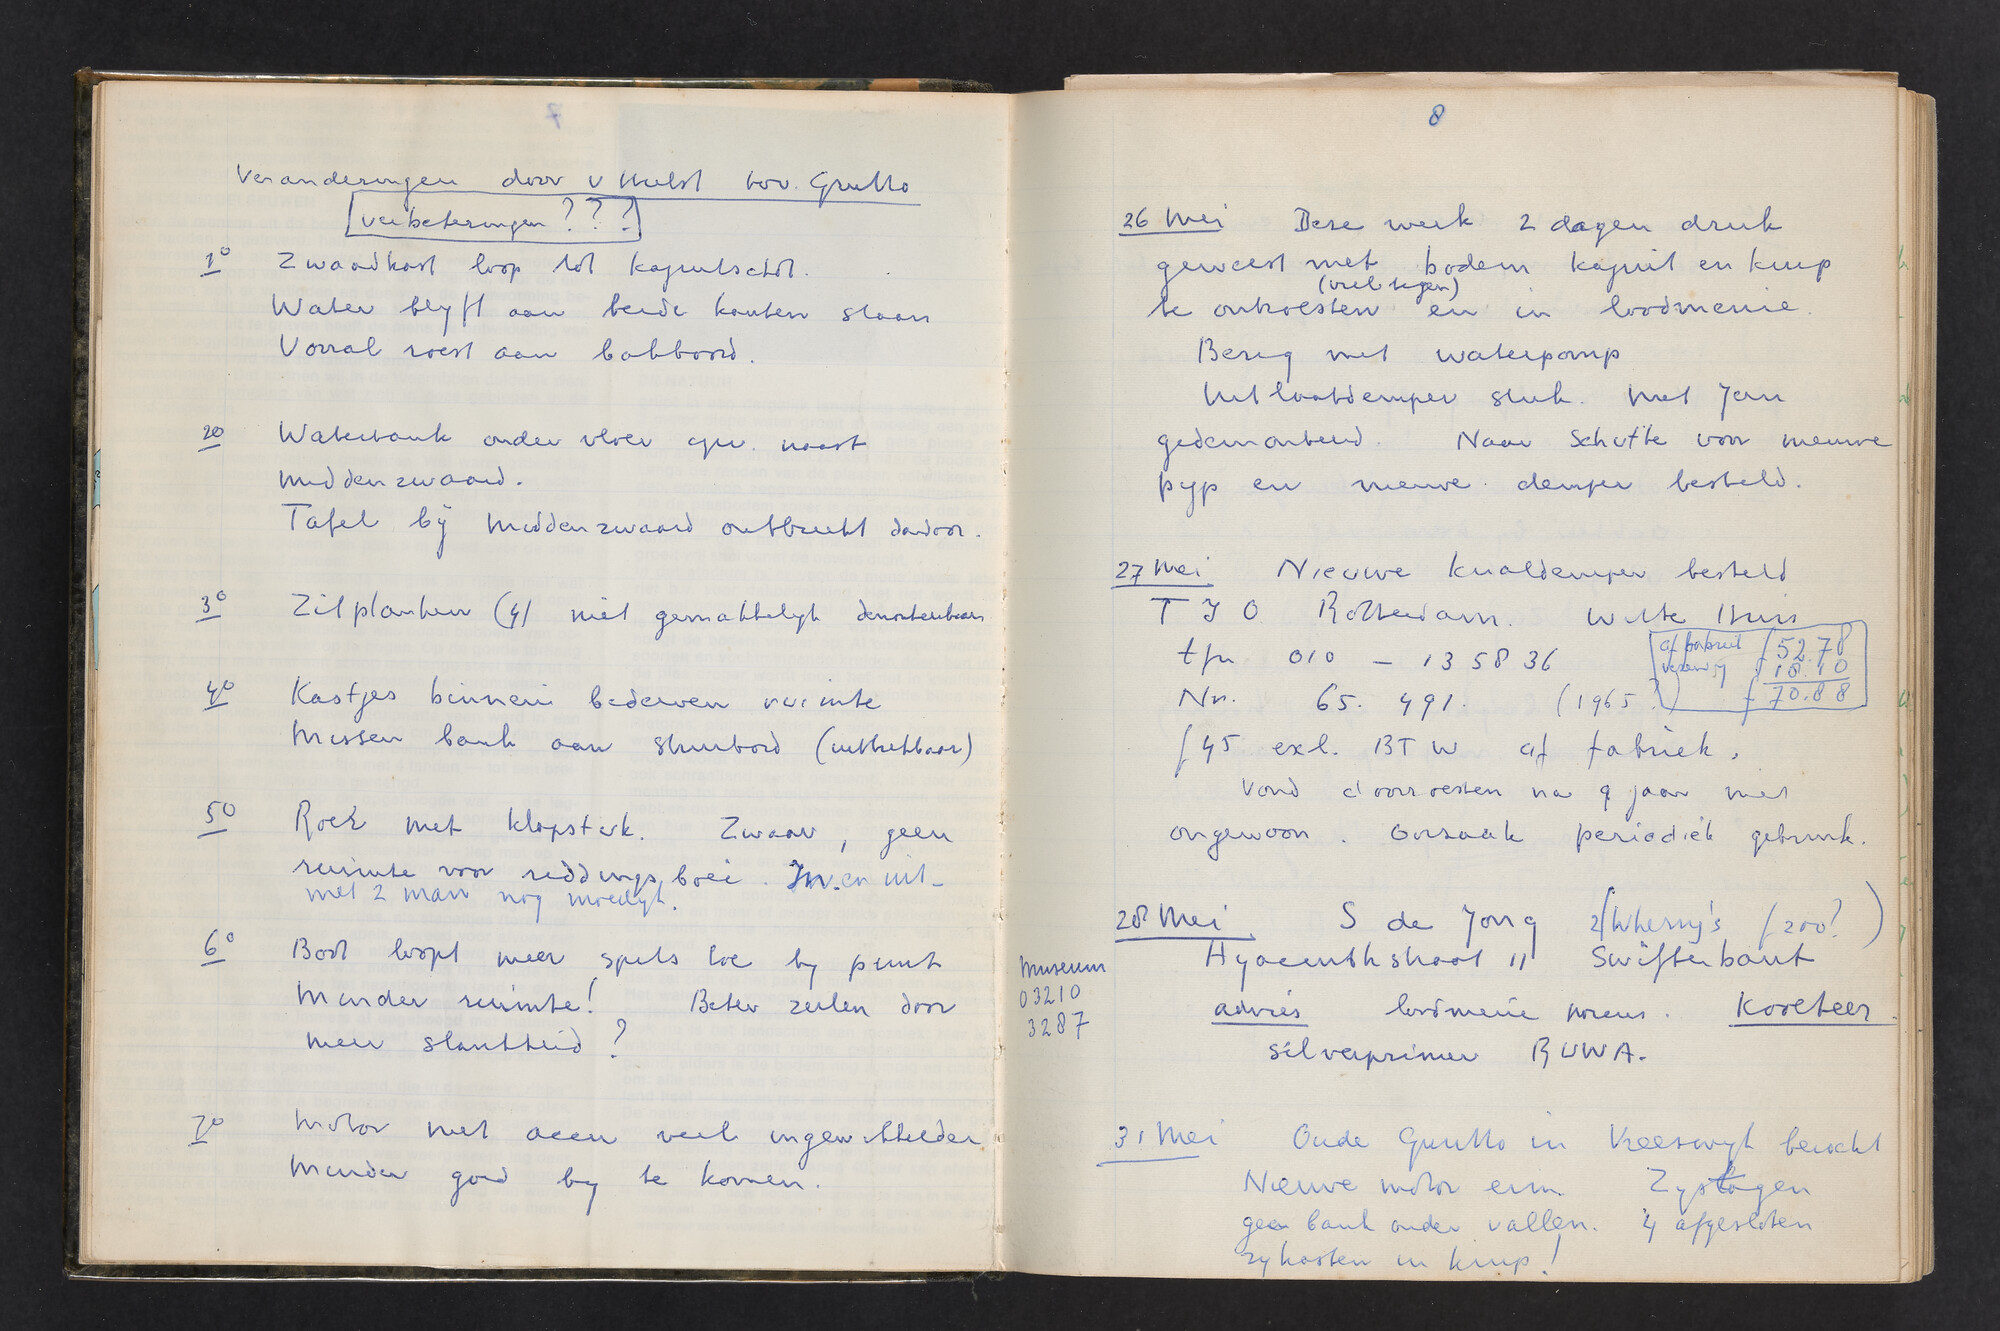 7
Veranderingen door v Hulst t.o.v. Grutto
verbeteringen ? ? ?
1° Zwaardkast loop tot kajuitschot.
Water blyft aan beide kanten staan
Vooral roest aan bakboord.
2° Watertank onder vloer naast
middenzwaard.
Tafel bij middenzwaard ontbreekt daardoor.
3° Zitplanken (4) niet gemakkelyk demonteerbaar
4° Kastjes binnen bederven ruimte
Missen bank aan stuurboord (uittrekbaar)
5° Roer met klapstuk. Zwaar, geen
ruimte voor reddingsboei. In en uit-
met 2 man nog moeilyk.
6° Boot loopt meer spits toe by punt
Minder ruimte! Beter zeilen door
meer slankheid?
7° Motor met veel ingewikkelder
Minder goed by te komen.
8
26 Mei Deze week 2 dagen druk
geweest met bodem kajuit en kuip
(veel regen)
te ontroesten en in loodmenie.
Bezig met waterpomp
Uitlaatdemper stuk. Met Jan
gedemonteerd. Naar Schutte voor nieuwe
pyp en nieuwe demper besteld.
27 Mei Nieuwe knaldemper besteld
T Y O Rotterdam. Witte Huis
tfn 010 – 13 58 36
af fabriek f 52.78
18.10
f 70.88
Nr. 65. 491. (1965?)
f 45 exl. BTW af fabriek.
Vond doorroesten na 9 jaar niet
ongewoon. Oorzaak periodiek gebruik.
28 Mei. S de Jong 2 (Wherry's f 200?)
Hyacinthstraat 11 Swifterbant
Museum
03210
3287
advies loodmenie poreus. Koolteer.
silverprimer RUWA.
31 Mei Oude Grutto in Vreeswyk bezocht
Nieuwe motor erin. Zystagen
geen bank onder vallen. 4 afgesloten
zykasten in kuip!